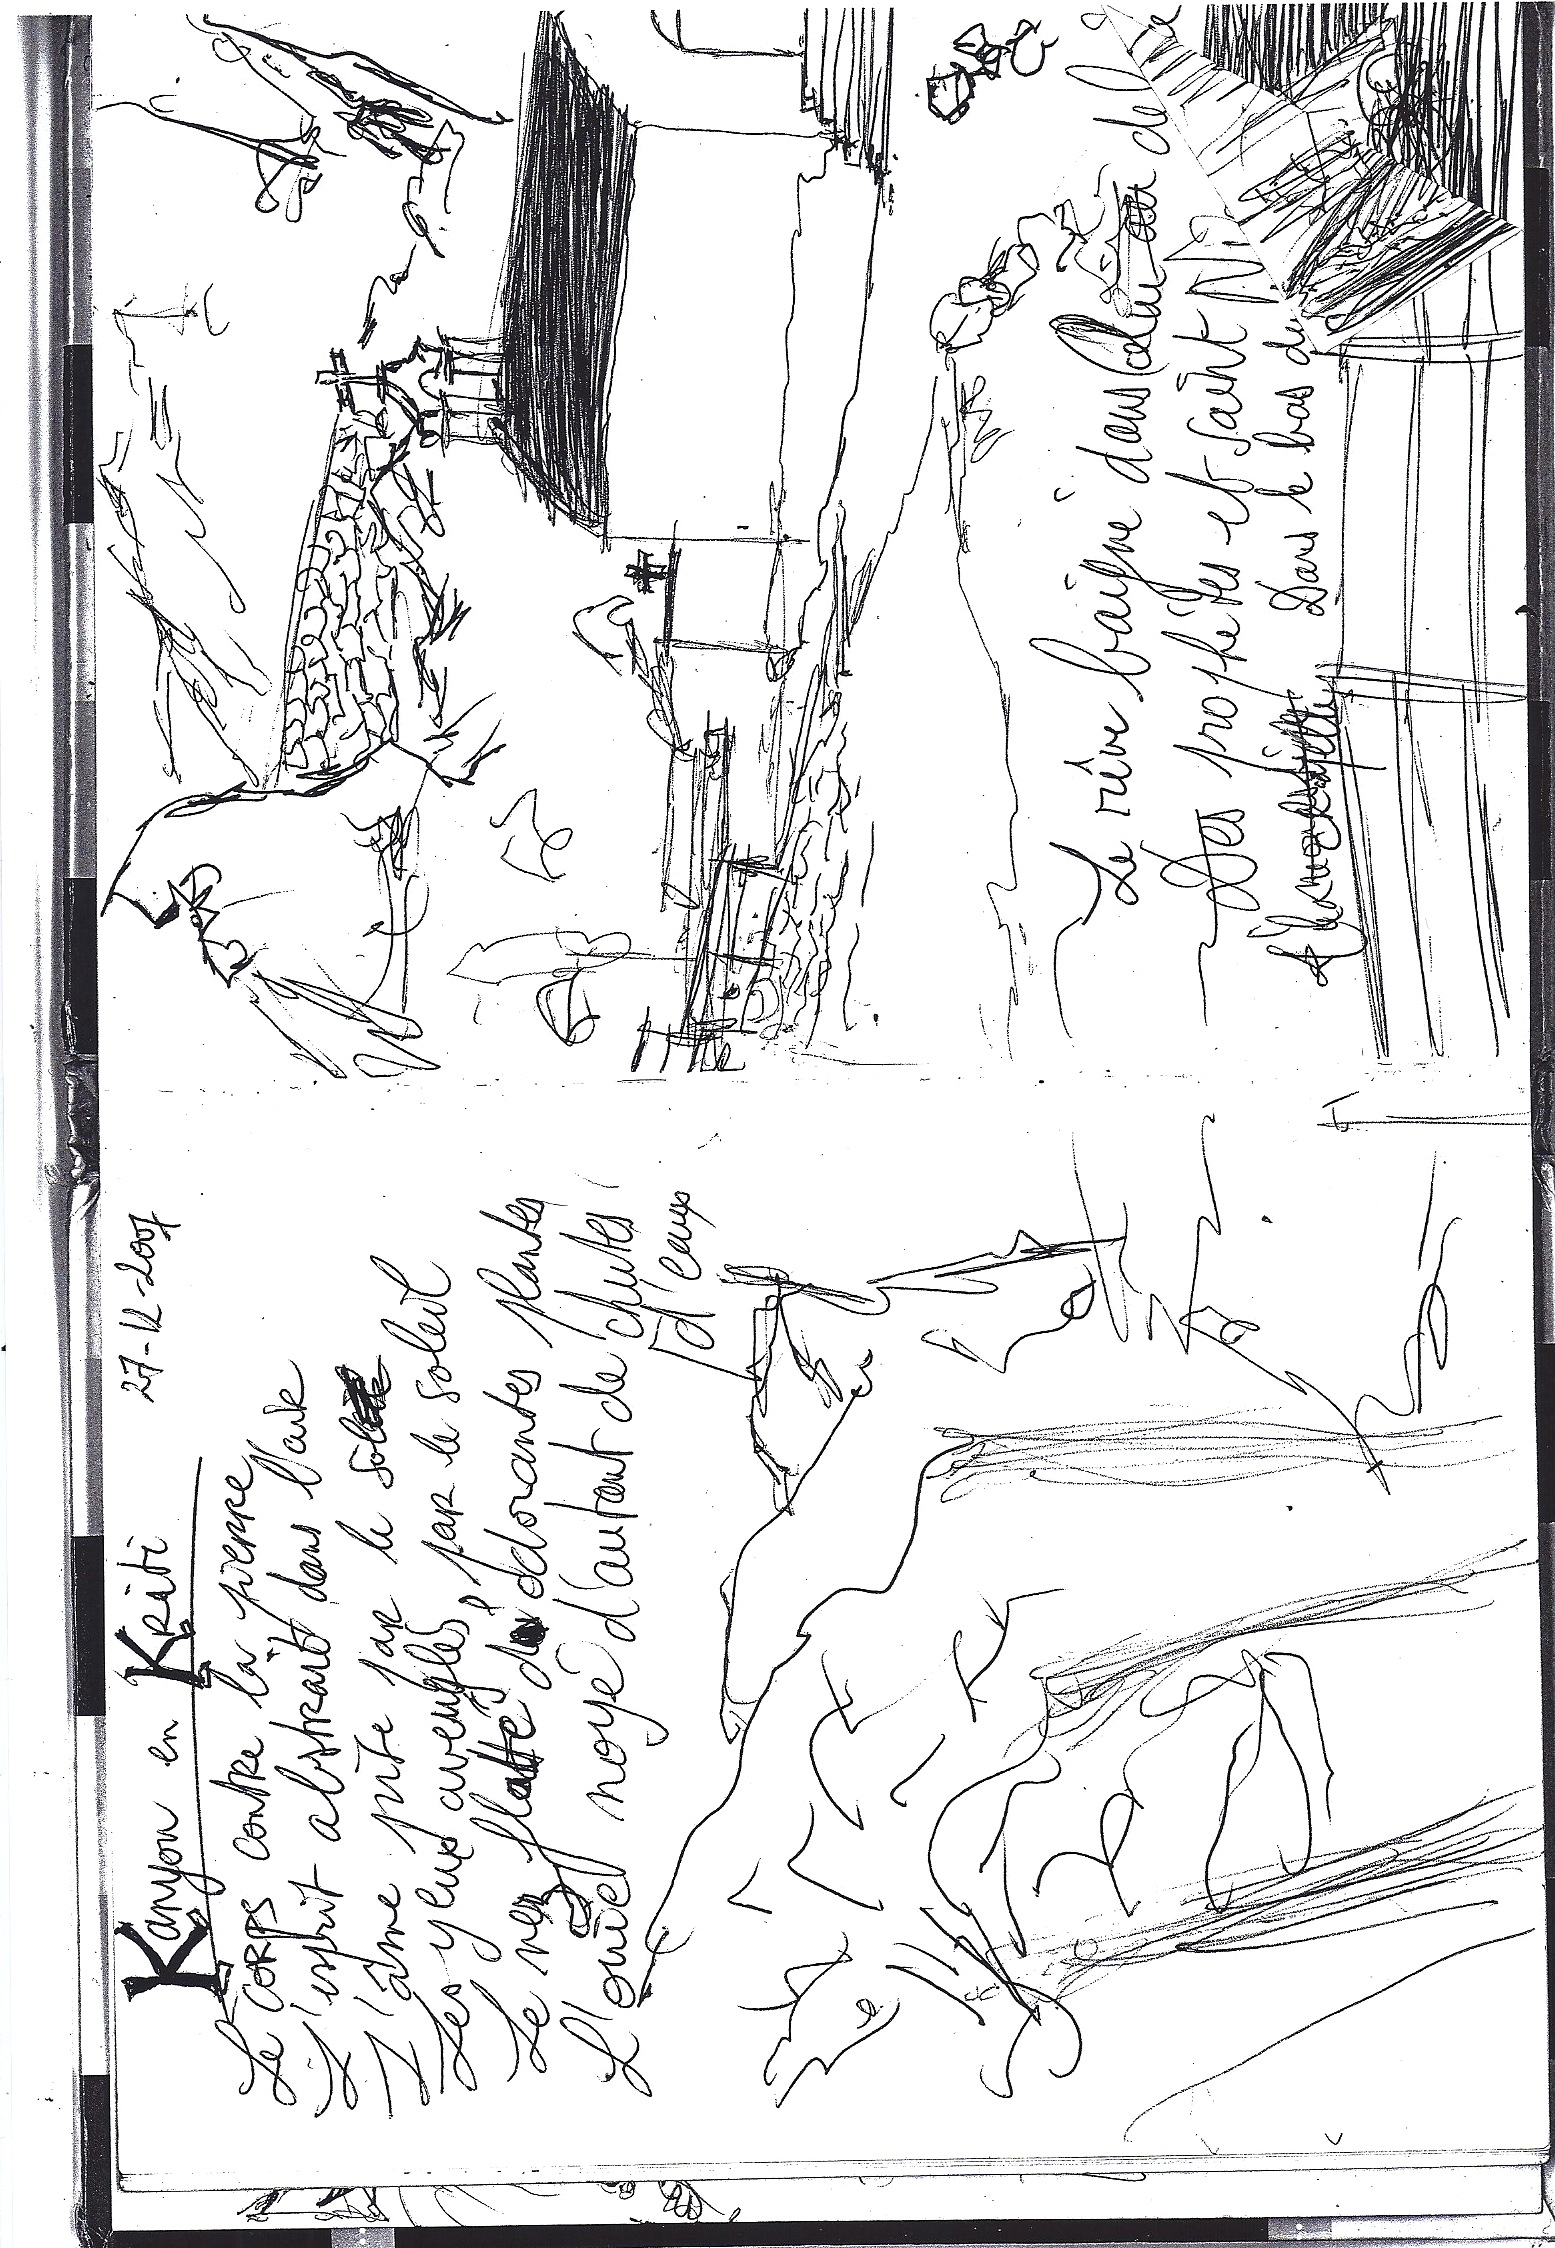 Kanyon en Kriti 27-12-2007
Le corps contre la pierre
L'esprit abstrait dans l'air
L'âme prise par le
Les yeux aveuglés, par le soleil
Le nez flatté odorantes plantes
L'ouïe noyé d'autant de chutes
d'eaux
Le rêve baigne dans
Des prophètes et saint
Dans le bas de